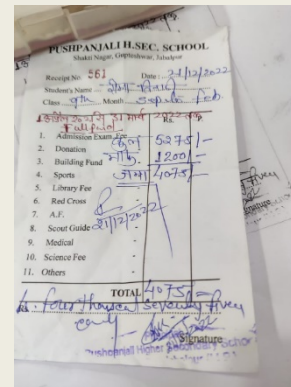 PUSHPANJALI H.SEC. SCHOOL
Shakti Nagar, Gupteshwar, Jabalpur
Receipt No 561 Date : 21/12/2022
Student's Name
Class 9th Month
Full paid Rs.
1. Admission Exam Fee कुल 5275/-
2. Donation माफ 1200/-
3. Building Fund
4. Sports जमा 4075/-
5. Library Fee
6. Red Cross
7. A.F. 21/12/2022
8. Scout Guide
9. Medical
10. Science Fee
11. Others
TOTAL 4075/-
Rs. four thousand seventy five
only
Signature
Pushpanjali Higher Secondary School